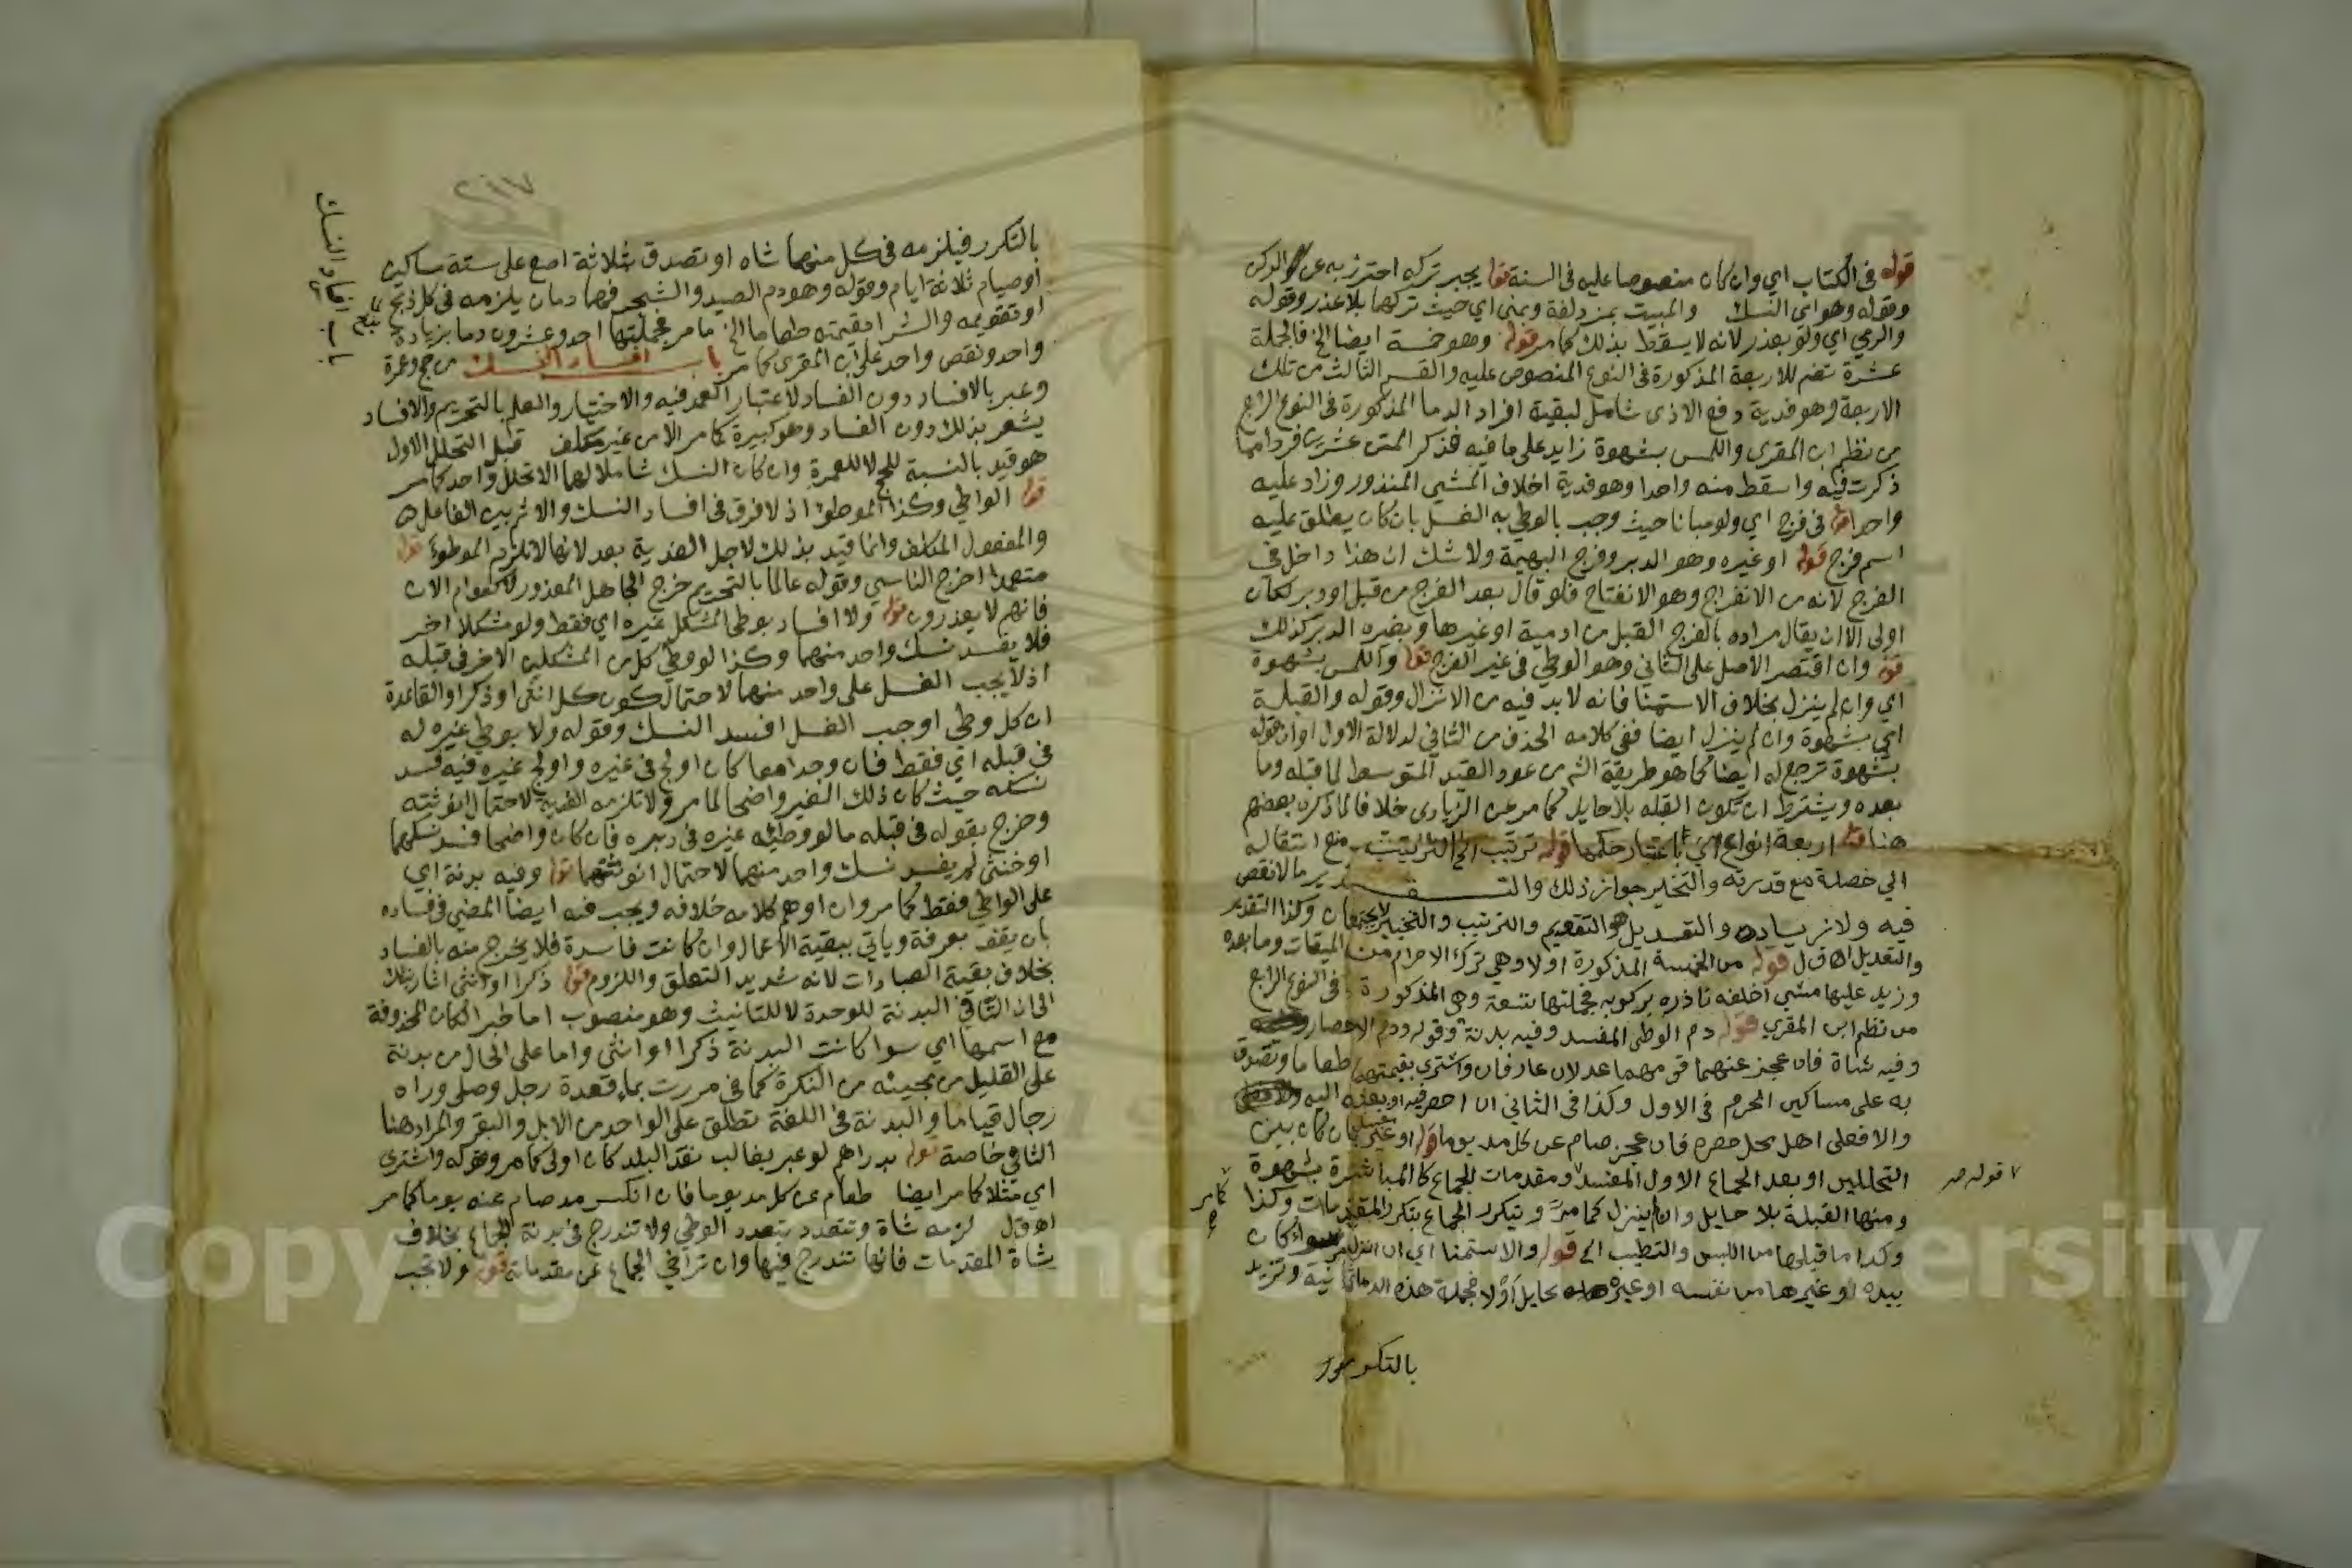 قوله في الكتاب اي وان كان منصوصا عليه في السنة قوله يجبر تركه احترز به عن الركن
وقوله وهو اي النسك والمبيت بمزدلفة وبمنى اي حيث تركها بلا عذر وقوله
والرمي اي ولو بعذر لانه لا يسقط بذلك كما مر قوله وهو خمسة ايضا الخ فالجملة
عشرة تضم للاربعة المذكورة في النوع المنصوص عليه والقسم الثالث من تلك
الاربعة وهو فدية دفع الاذى شامل لبقية افراد الدما المذكورة في النوع الرابع
من نظم ابن المقري واللمس بشهوة زايد على ما فيه فذكر المتن عشرين فردا مما
ذكرت فيه واسقط منه واحدا وهو فدية اخلاف المشي المنذور وزاد عليه
واحدا قوله في فرج اي ولو مبانا حيث وجب بالوطي به الغسل بان كان يطلق عليه
اسم فرج قوله او غيره وهو الدبر وفرج البهيمة ولا شك ان هذا داخل في
الفرج لانه من الانفراج وهو الانفتاح فلو قال بعد الفرج من قبل او دبر لكان
اولى الا ان يقال مراده بالفرج القبل من ادمية او غيرها وبغيره الدبر كذلك
قوله وان اقتصر الاصل على الثاني وهو الوطي في غير الفرج قوله واللمس بشهوة
اي وان لم ينزل بخلاف الاستمنا فانه لا بد فيه من الانزال وقوله والقبلة
اي بشهوة وان لم ينزل ايضا ففي كلامه الحذف من الثاني لدلالة الاول او ان قوله
بشهوة ترجع له ايضا كما هو طريقة الشم من عود القيد المتوسط لما قبله وما
بعده ويشترط ان تكون القبله بلا حايل كما مر عن الزيادي خلافا لما ذكره بعضهم
هنا قوله اربعة انواع اي باعتبار حكمها قوله ترتيب الخ الترتيب منع انتقاله
الي خصلة مع قدرته والتخيير جواز ذلك والتقدير ما لا نقص
فيه ولا زياده والتعديل هو التقويم والترتيب والتخيير لا يجتمعان وكذا التقدير
والتعديل اه ق ل قوله من الخمسة المذكورة اولا وهي ترك الاحرام من الميقات وما بعده
وزيد عليها مشي اخلفه ناذره بركوبه فجملتها تسعة وهي المذكورة في النوع الرابع
من نظم ابن المقري قوله دم الوطي المفسد وفيه بدنة وقوله ودم الاحصار
وفيه شاة فان عجز عنهما قومهما عدلان عارفان واشتري بقيمتهما طعاما وتصدق
به على مساكين الحرم في الاول وكذا في الثاني ان احصر فيه او بعثه اليه
والا فعلى اهل محل حصره فان عجز صام عن كل مد يوما قوله او غير مفسد بان كان بين
التحللين او بعد الجماع الاول المفسد ومقدمات الجماع كالمباشرة بشهوة
ومنها القبلة بلا حايل وان لم ينزل كما مر وتيكرر الجماع بتكرر المقدمات وكذا
وكذا ما قبلها من اللبس والتطيب الخ قوله والاستمنا اي ان انزل سواء كان
بيده او غيرها من نفسه او غيره بحايل او لا فجملة هذه الدما ثمانية وتزيد
بالتكرر
٧ قوله صح
كما مر
باب افساد النسك
بالتكرر فيلزمه في كل منهما شاه او تصدق بثلاثة اصع على ستة مساكين
او صيام ثلاثة ايام وقوله وهو دم الصيد والشجر فهما دمان يلزمه في كل ذبح
او تقويمه والشرا بقيمته طعاما الخ ما مر فجملتها احد وعشرون دما بزيادة
واحد ونقص واحد على ابن المقري كما مر باب افساد النسك من حج وعمرة
وعبر بالافساد دون الفساد لاعتبار العمد فيه والاختيار والعلم بالتحريم والافساد
يشعر بذلك دون الفساد وهو كبيرة كما مر الا من غير مكلف قبل التحلل الاول
هو قيد بالنسبة للحج لا للعمرة وان كان النسك شاملا لها الا تحلل واحد كما مر
قوله الواطي وكذا الموطوء اذ لا فرق في افساد النسك والاثم بين الفاعل
والمفعول المكلف وانما قيد بذلك لاجل الفدية بعد لانها لا تلزم الموطوة قوله
متعمدا اخرج الناسي وقوله عالما بالتحريم خرج الجاهل المعذور كعوام الان
فانهم لا يعذرون قوله ولا افساد بوطي المشكل غيره اي فقط ولو مشكلا اخر
فلا يفسد نسك واحد منهما وكذا لو وطي كل من المشكلين الاخر في قبله
اذ لا يجب الغسل على واحد منهما لاحتمال كون كل انثى او ذكرا والقاعدة
ان كل وطي اوجب الغسل افسد النسك وقوله ولا بوطي غيره له
في قبله اي فقط فان وجدا معا كان اولج في غيره واولج غيره فيه فسد
نسكه حيث كان ذلك الغير واضحا لما مر ولا تلزمه الفدية لاحتمال انوثيته
وخرج بقوله في قبله ما لو وطيه غيره في دبره فان كان واضحا فسد نسكهما
او خنثى لم يفسد نسك واحد منهما لاحتمال انوثتهما قوله وفيه بدنة اي
على الواطي فقط كما مر وان اوهم كلامه خلافه ويجب فيه ايضا المضي في فساده
بان يقف بعرفة وياتي ببقية الاعمال وان كانت فاسدة فلا يخرج منه بالفساد
بخلاف بقية العبادات لانه شديد التعلق واللزوم قوله ذكرا او انثى اشار بذلك
الى ان التا في البدنة للوحدة لا للتانيث وهو منصوب اما خبر الكان المحذوفة
مع اسمها اي سوا كانت البدنة ذكرا او انثى واما على الحال من بدنة
على القليل من مجيئه من النكرة كما في مررت بماء قعدة رجل وصلى وراه
رجال قياما والبدنة في اللغة تطلق على الواحد من الابل والبقر والمراد هنا
الثاني خاصة قوله بدراهم لو عبر بغالب نقد البلد كان اولى كما مر وقوله واشترى
اي مثلا كما مر ايضا طعام عن كل مد يوما فان انكسر مد صام عنه يوما كما مر
اه ق ل لزمه شاة وتتعدد بتعدد الوطي ولا تندرج في بدنة الجماع بخلاف
شاة المقدمات فانها تندرج فيها وان تراخي الجماع عن مقدماته قوله ولا تجب
Copyright © King ersity